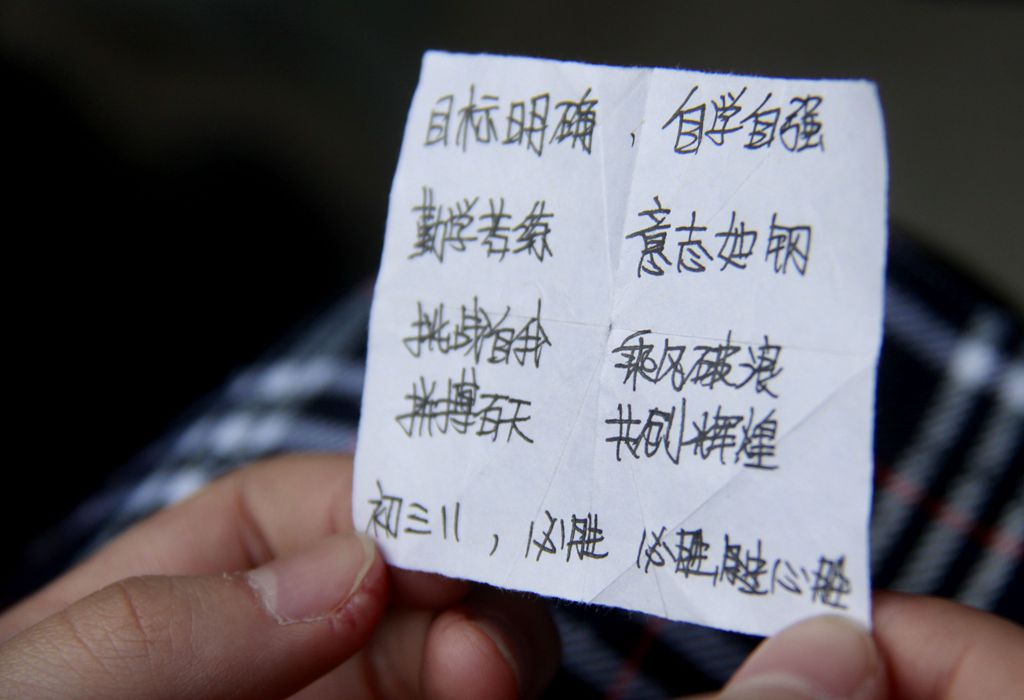 目标明确，自学自强
勤学苦练 意志如钢
挑战自我 乘风破浪
拼搏百天 共创辉煌
初三11，必胜 必胜胜必胜